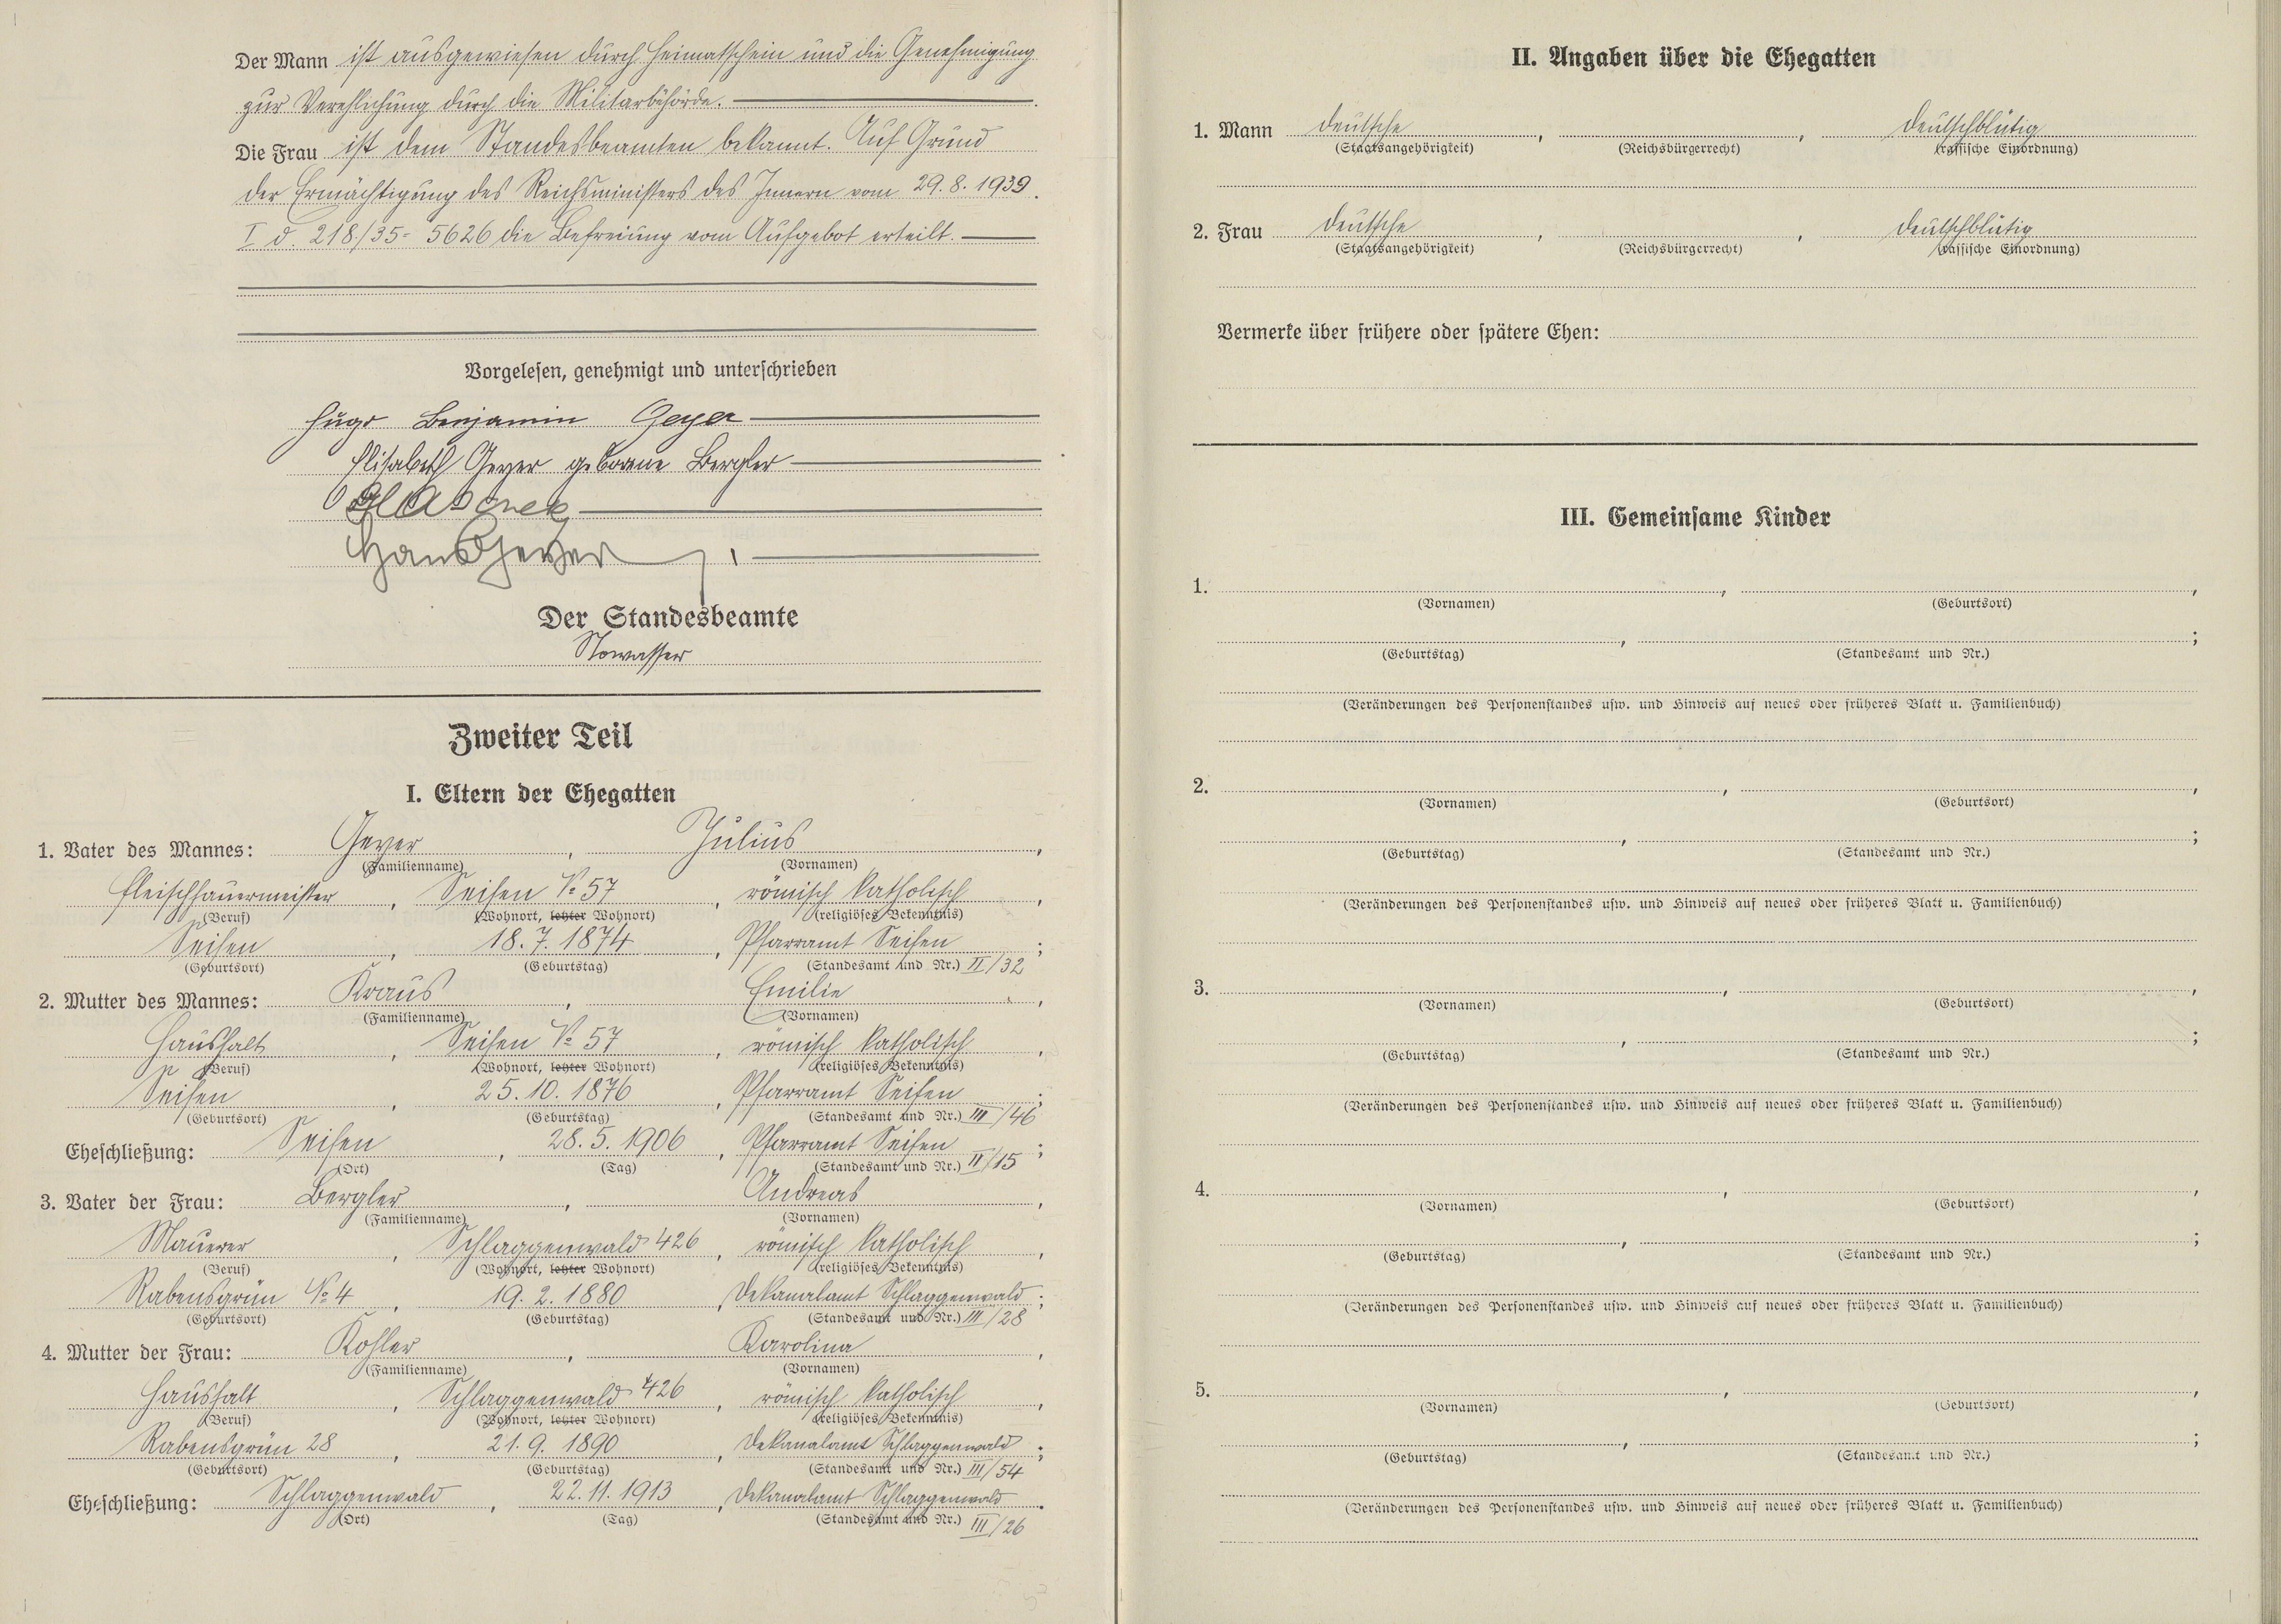 Der Mann ist ausgewiesen durch Heimatschein und die Genehmigung
zur Verehlichung durch die Militärbehörde.
Die Frau ist dem Standesbeamten bekannt. Auf Grund
der Ermächtigung des Reichsministers des Innern vom 29.8.1939.
I d. 218/35= 5626 die Befreiung vom Aufgebot erteilt.
Vorgelesen, genehmigt und unterschrieben
Hugo Benjamin Geyer
Elisabeth Geyer geborene Bergler
Hans Geyer
Der Standesbeamte
Nowasser
Zweiter Teil
I. Eltern der Ehegatten
1. Vater des Mannes: Geyer, Julius,
(Familienname) (Vornamen)
Fleischhauermeister, Seifen № 57, römisch katholisch,
(Beruf) (Wohnort, letzter Wohnort) (religiöses Bekenntnis)
Seifen, 18.7.1874, Pfarramt Seifen;
(Geburtsort) (Geburtstag) (Standesamt und Nr.) II/32
2. Mutter des Mannes: Kraus, Emilie,
(Familienname) (Vornamen)
Haushalt, Seifen № 57, römisch katholisch,
(Beruf) (Wohnort, letzter Wohnort) (religiöses Bekenntnis)
Seifen, 25.10.1876, Pfarramt Seifen;
(Geburtsort) (Geburtstag) (Standesamt und Nr.) III/46
Eheschließung: Seifen, 28.5.1906, Pfarramt Seifen;
(Ort) (Tag) (Standesamt und Nr.) II/15
3. Vater der Frau: Bergler, Andreas,
(Familienname) (Vornamen)
Maurer, Schlaggenwald 426, römisch katholisch,
(Beruf) (Wohnort, letzter Wohnort) (religiöses Bekenntnis)
Rabensgrün № 4, 19.2.1880, Dekanalamt Schlaggenwald;
(Geburtsort) (Geburtstag) (Standesamt und Nr.) III/28
4. Mutter der Frau: Kohler, Karolina,
(Familienname) (Vornamen)
Haushalt, Schlaggenwald 426, römisch katholisch,
(Beruf) (Wohnort, letzter Wohnort) (religiöses Bekenntnis)
Rabensgrün 28, 21.9.1890, Dekanalamt Schlaggenwald;
(Geburtsort) (Geburtstag) (Standesamt und Nr.) III/54
Eheschließung: Schlaggenwald, 22.11.1913, Dekanalamt Schlaggenwald.
(Ort) (Tag) (Standesamt und Nr.) III/26
II. Angaben über die Ehegatten
1. Mann deutsche, , deutschblütig
(Staatsangehörigkeit) (Reichsbürgerrecht) (rassische Einordnung)
2. Frau deutsche, , deutschblütig
(Staatsangehörigkeit) (Reichsbürgerrecht) (rassische Einordnung)
Vermerke über frühere oder spätere Ehen:
III. Gemeinsame Kinder
1. , ,
(Vornamen) (Geburtsort)
, ;
(Geburtstag) (Standesamt und Nr.)
(Veränderungen des Personenstandes usw. und Hinweis auf neues oder früheres Blatt u. Familienbuch)
2. , ,
(Vornamen) (Geburtsort)
, ;
(Geburtstag) (Standesamt und Nr.)
(Veränderungen des Personenstandes usw. und Hinweis auf neues oder früheres Blatt u. Familienbuch)
3. , ,
(Vornamen) (Geburtsort)
, ;
(Geburtstag) (Standesamt und Nr.)
(Veränderungen des Personenstandes usw. und Hinweis auf neues oder früheres Blatt u. Familienbuch)
4. , ,
(Vornamen) (Geburtsort)
, ;
(Geburtstag) (Standesamt und Nr.)
(Veränderungen des Personenstandes usw. und Hinweis auf neues oder früheres Blatt u. Familienbuch)
5. , ,
(Vornamen) (Geburtsort)
, ;
(Geburtstag) (Standesamt und Nr.)
(Veränderungen des Personenstandes usw. und Hinweis auf neues oder früheres Blatt u. Familienbuch)